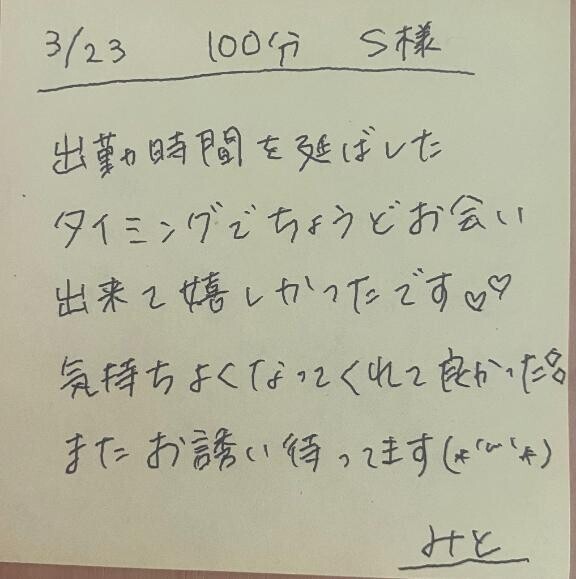 3/23 100分 S様
出勤時間を延ばした
タイミングでちょうどお会い
出来て嬉しかったです♡♡
気持ちよくなってくれて良かった◇◇
またお誘い待ってます(*'ω'*)
みと